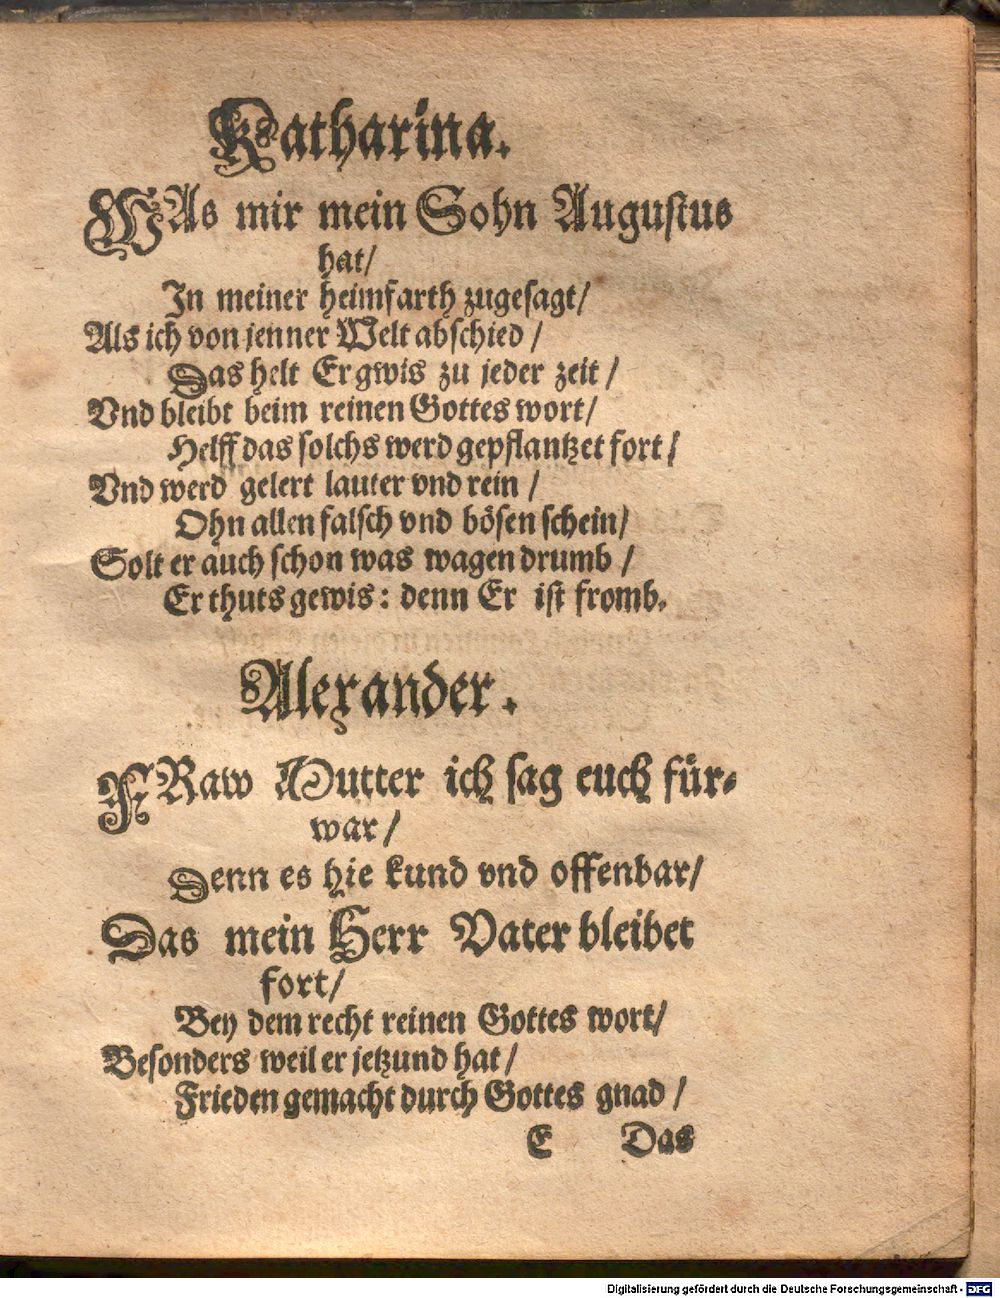 Katharina.
WAs mir mein Sohn Augustus
hat/
In meiner heimfarth zugesagt/
Als ich von jenner Welt abschied/
Das helt Er gwis zu jeder zeit/
Vnd bleibt beim reinen Gottes wort/
Helff das solchs werd gepflantzet fort/
Vnd werd gelert lauter vnd rein/
Ohn allen falsch vnd bösen schein/
Solt er auch schon was wagen drumb/
Er thuts gewis: denn Er ist fromb.
Alexander.
FRaw Mutter ich sag euch für-
war/
Denn es hie kund vnd offenbar/
Das mein Herr Vater bleibet
fort/
Bey dem recht reinen Gottes wort/
Besonders weil er jetzund hat/
Frieden gemacht durch Gottes gnad/
E Das
Digitalisierung gefördert durch die Deutsche Forschungsgemeinschaft - DFG